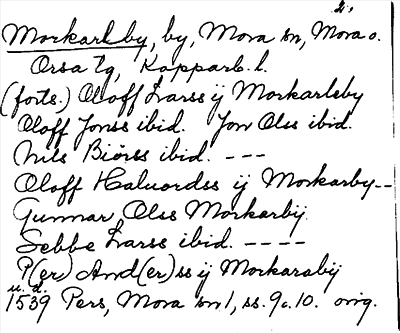 2.
Morkarlby, by, Mora sn, Mora o.
Orsa tg, Kopparb. l.
(forts.) Oloff Larss ij Morkarleby
Oloff Jonss ibid. Jon Olss ibid.
Nils Biörss ibid. ---
Oloff Haluordss ij Morkarby--
Gunnar Olss Morkarbij.
Sebbe Larss ibid. ----
P(er) And(er)ss ij Morkarabij
u.d.
1539 Pers, Mora sn 1, ss. 9 o. 10. orig.